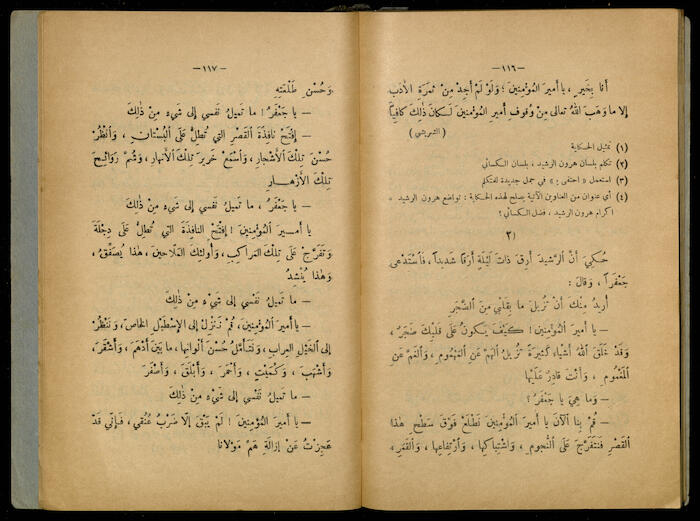 —١١٦—
أَنَا بِخَيْرٍ، يا أَميرَ المُؤْمِنينَ؛ وَلَوْ لَمْ أَجِدْ مِنْ ثَمَرَةِ الأَدَبِ
إلا ما وَهَبَ اللهُ تعالى مِنْ وُقُوفِ أَميرِ المؤمنينَ لَكانَ ذلكَ كافِيًا
(الشريشي)
(١) تمثيل الحكاية
(٢) تكلم بلسان هرون الرشيد ، بلسان الكسائي
(٣) استعمل « احتفى بـ » في جمل جديدة لغتكلم
(٤) أي عنوان من العناوين الآتية يصلح لهذه الحكاية : تواضع هرون الرشيد ،
اكرام هرون الرشيد ، فضل الكسائي؟
(٣
حُكِيَ أَنَّ الرَّشيدَ أَرِقَ ذاتَ لَيْلَةٍ أَرَقًا شَديدًا، فَاسْتَدْعى
جَعْفَرًا ، وَقالَ :
أُريدُ مِنْكَ أَنْ تُزيلَ ما بِقَلْبي مِنَ الضَّجَرِ
— يا أَميرَ المُؤْمِنينَ! كَيْفَ يَكونُ عَلى قَلْبِكَ ضَجَرٌ ،
وَقَدْ خَلَقَ اللهُ أَشْياءَ كَثيرَةً تُزيلُ الهَمَّ عَنِ المَهْمومِ ، وَالغَمَّ عَنِ
المَغْمومِ ، وَأَنْتَ قادِرٌ عَلَيْها
— وَما هِيَ يا جَعْفَرُ؟
— قُمْ بِنا الآنَ يا أَميرَ المُؤْمِنينَ نَطْلَعُ فَوْقَ سَطْحِ هٰذا
القَصْرِ فَنَتَفَرَّجُ عَلَى النُّجومِ ، وَاشْتِباكِها ، وَارْتِفاعِها ، وَالقَمَرِ ،
—١١٧—
وَحُسْنِ طَلْعَتِهِ
— يا جَعْفَرُ! ما تَميلُ نَفْسي إِلى شَيْءٍ مِنْ ذٰلِكَ
— اِفْتَحْ نافِذَةَ القَصْرِ الَّتي تُطِلُّ عَلَى البُسْتانِ ، وَانْظُرْ
حُسْنَ تِلْكَ الأَشْجارِ ، وَاسْتَمِعْ خَريرَ تِلْكَ الأَنْهارِ ، وَشُمَّ رَوائِحَ
تِلْكَ الأَزْهارِ
— يا جَعْفَرُ ، ما تَميلُ نَفْسي إِلى شَيْءٍ مِنْ ذٰلِكَ
— يا أَميرَ المُؤْمِنينَ! اِفْتَحِ النافِذَةَ الَّتي تُطِلُّ عَلَى دِجْلَةَ
وَتَفَرَّجْ عَلَى تِلْكَ المَراكِبِ ، وَأُولئِكَ المَلّاحينَ ، هٰذا يُصَفِّقُ ،
وَهٰذا يُنْشِدُ
— ما تَميلُ نَفْسي إِلى شَيْءٍ مِنْ ذٰلِكَ
— يا أَميرَ المُؤْمِنينَ ، قُمْ نَنْزِلْ إِلى الإِسْطَبْلِ الخاصِّ ، وَنَنْظُرْ
إِلى الخَيْلِ العِرابِ ، وَنَتَأَمَّلْ حُسْنَ أَلْوانِها ، ما بَيْنَ أَدْهَمَ ، وَأَشْقَرَ ،
وَأَشْهَبَ ، وَكُمَيْتٍ ، وَأَحْمَرَ ، وَأَبْلَقَ ، وَأَصْفَرَ
— ما تَميلُ نَفْسي إِلى شَيْءٍ مِنْ ذٰلِكَ
— يا أَميرَ المُؤْمِنينَ ! لَمْ يَبْقَ إِلّا ضَرْبُ عُنُقي ، فَإِنّي قَدْ
عَجِزْتُ عَنْ إِزالَةِ هَمِّ مَوْلانا